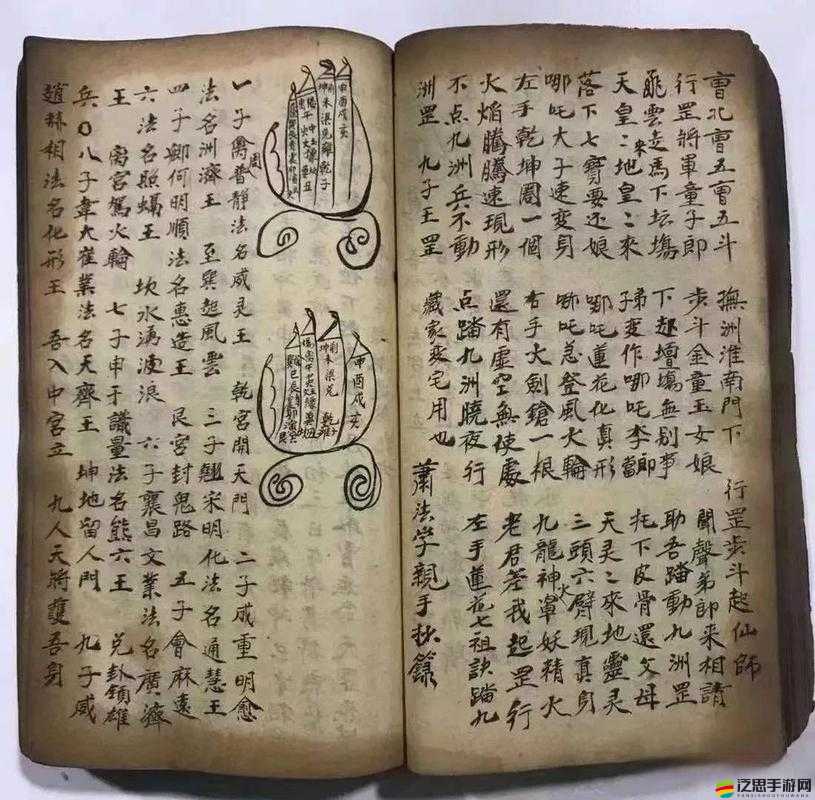 曹北曹五曹五斗 撫洲淮南門下 行罡步斗起仙師
行罡將軍童子郎 步斗金童玉女娘 聞聲弟郎來相請
飛雲走馬下坛塲 下都壇塲無別事 助吾踏動九洲罡
天皇二來地皇二來 弟子变作哪吒李郎當 托下皮骨還父母
落下七寶要还娘 哪吒蓮花化真形 天灵二來地靈灵
哪吒大子速变身 哪吒忽登風火輪 三頭六臂現真身
左手乾坤圈一個 右手大劍鎗一根 九龍神罩妖精火
火焰騰騰速現形 還有虛空無使處 老君差我起罡行
不点九洲兵不動 点踏九洲曉夜行 左手蓮花七祖訣踏九
洲罡 九子王罡 藏家变宅用也 蕭法学親手抄錄
申酉戌亥
申酉戌亥
一子禹普靜法名咸灵王 乾宮開天門 二子成重明愈
法名洲濟王 至巽起風雲 三子翘宋明化法名通慧王
四子鄒何明順法名惠造王 艮宮封鬼路 五子會麻遠
六法名照蟻王 坎水溤波浪 六子襄昌文業法名廣濟
王 离宮駕火輪 七子申矛議量法名熊六王 兑卦領雄
兵〇八子韋大崔業法名天齊王 坤地留人門 九子咸
趙赫相法名化形王 吾入中宮立 九人天將護吾身
泛思手游网